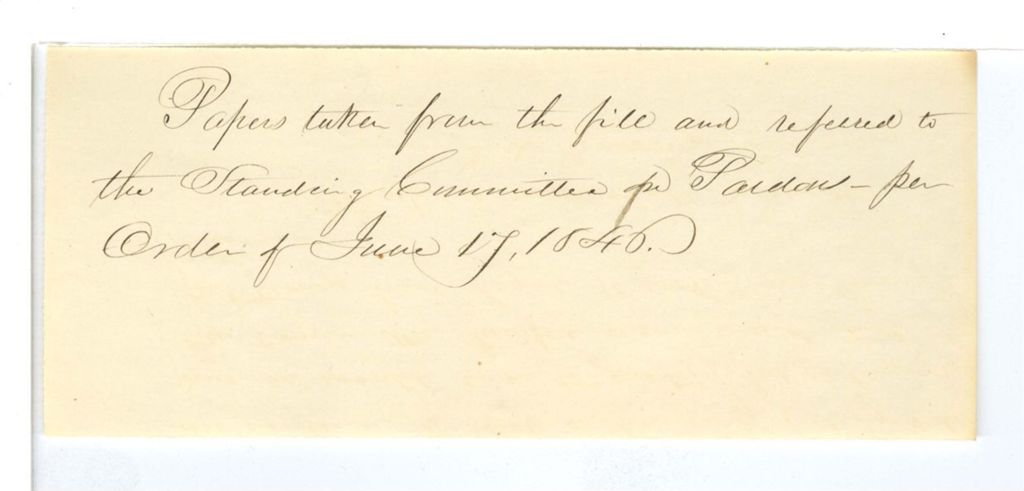 Papers taken from the file and referred to
the Standing Committee on Pardons - per
Order of June 17, 1846.